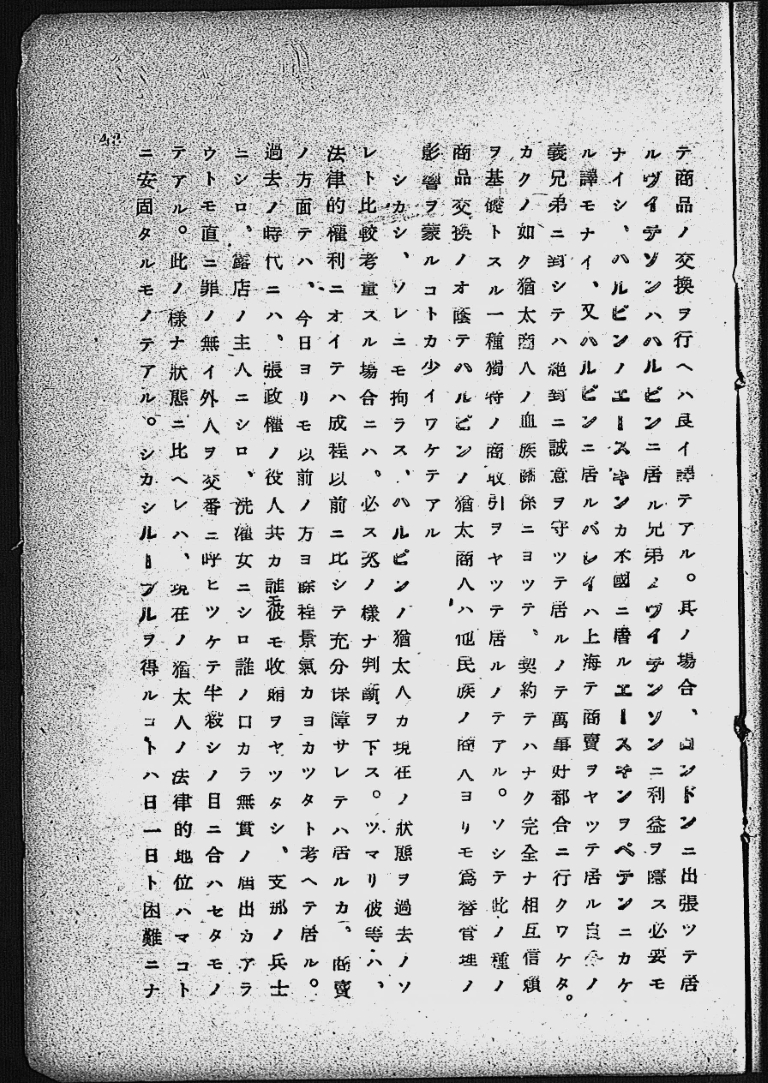 テ商品ノ交換ヲ行ヘハ良イ譯テアル。其ノ場合、ロンドンニ出張ツテ居
ルヴイテンソンハハルビンニ居ル兄弟ノヴイテンソンニ利益ヲ隱ス必要モ
ナイシ、ハルビンノエースキンカ米國ニ居ルエースキンヲペテンニカケ
ル譯モナイ、又ハルビンニ居ルバレイハ上海テ商賣ヲヤツテ居ル自分ノ
義兄弟ニ對シテハ絶對ニ誠意ヲ守ツテ居ルノテ萬事好都合ニ行クワケタ。
カクノ如ク猶太商人ノ血族關係ニヨツテ、契約テハナク完全ナ相互信賴
ヲ基礎トスル一種獨特ノ商取引ヲヤツテ居ルノテアル。ソシテ此ノ種ノ
商品交換ノオ蔭テハルビンノ猶太商人ハ他民族ノ商人ヨリモ爲替管理ノ
影響ヲ蒙ルコトカ少イワケテアル
シカシ、ソレニモ拘ラス、ハルビンノ猶太人カ現在ノ狀態ヲ過去ノソ
レト比較考量スル場合ニハ。必ス次ノ樣ナ判斷ヲ下ス。ツマリ彼等ハ、
法律的權利ニオイテハ成程以前ニ比シテ充分保障サレテハ居ルカ、商賣
ノ方面テハ、今日ヨリモ以前ノ方ヨ餘程景氣カヨカツタト考ヘテ居ル。
過去ノ時代ニハ、張政權ノ役人共カ誰モ彼モ收賄ヲヤツタシ、支那ノ兵士
ニシロ、露店ノ主人ニシロ、洗濯女ニシロ誰ノ口カラ無實ノ屆出カアラ
ウトモ直ニ罪ノ無イ外人ヲ交番ニ呼ヒツケテ半殺シノ目ニ合ハセタモノ
テアル。此ノ樣ナ狀態ニ比ヘレハ、現在ノ猶太人ノ法律的地位ハマコト
ニ安固タルモノテアル。シカシルーブルヲ得ルコトハ日一日ト困難ニナ